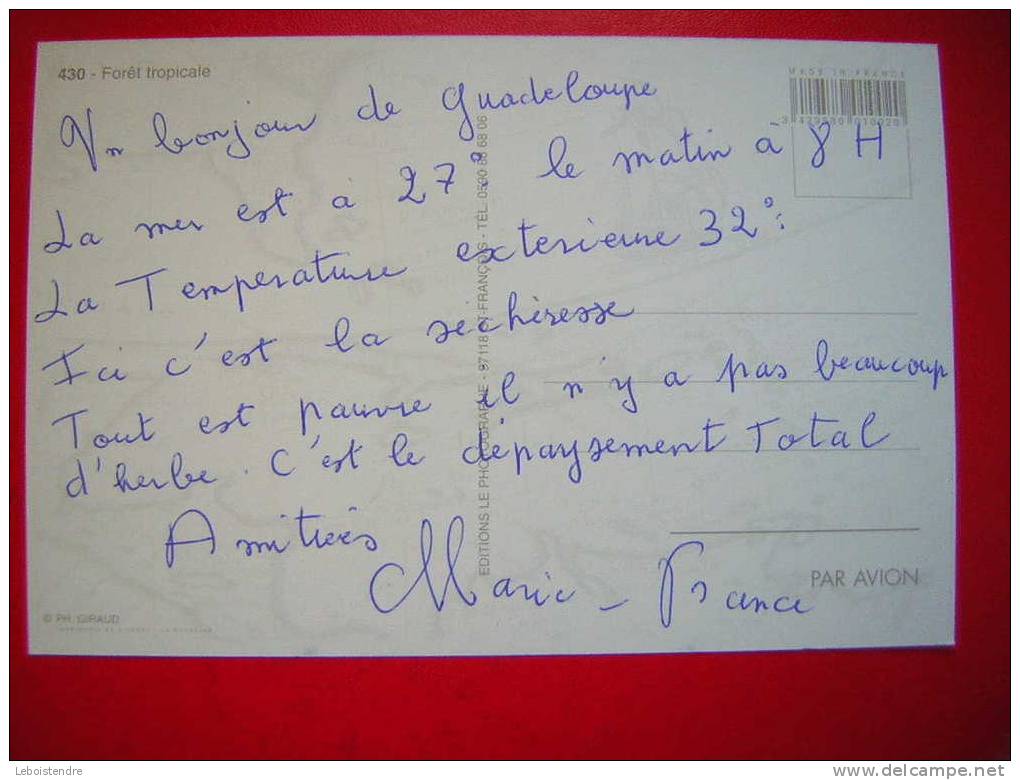 430 - Forêt tropicale
MADE IN FRANCE
Un bonjour de Guadeloupe
La mer est à 27°. le matin à 8 H
La Température exterieure 32°.
Ici c'est la sechéresse
Tout est pauvre il n'y a pas beaucoup
d'herbe. C'est le dépaysement Total
Amitiés
Marie - France
EDITIONS LE PHOTOGRAPHE - 97118 ST-FRANÇOIS - TÉL. 0590 88 68 06
PAR AVION
© PH. GIRAUD
Leboistendre
delcampe.net